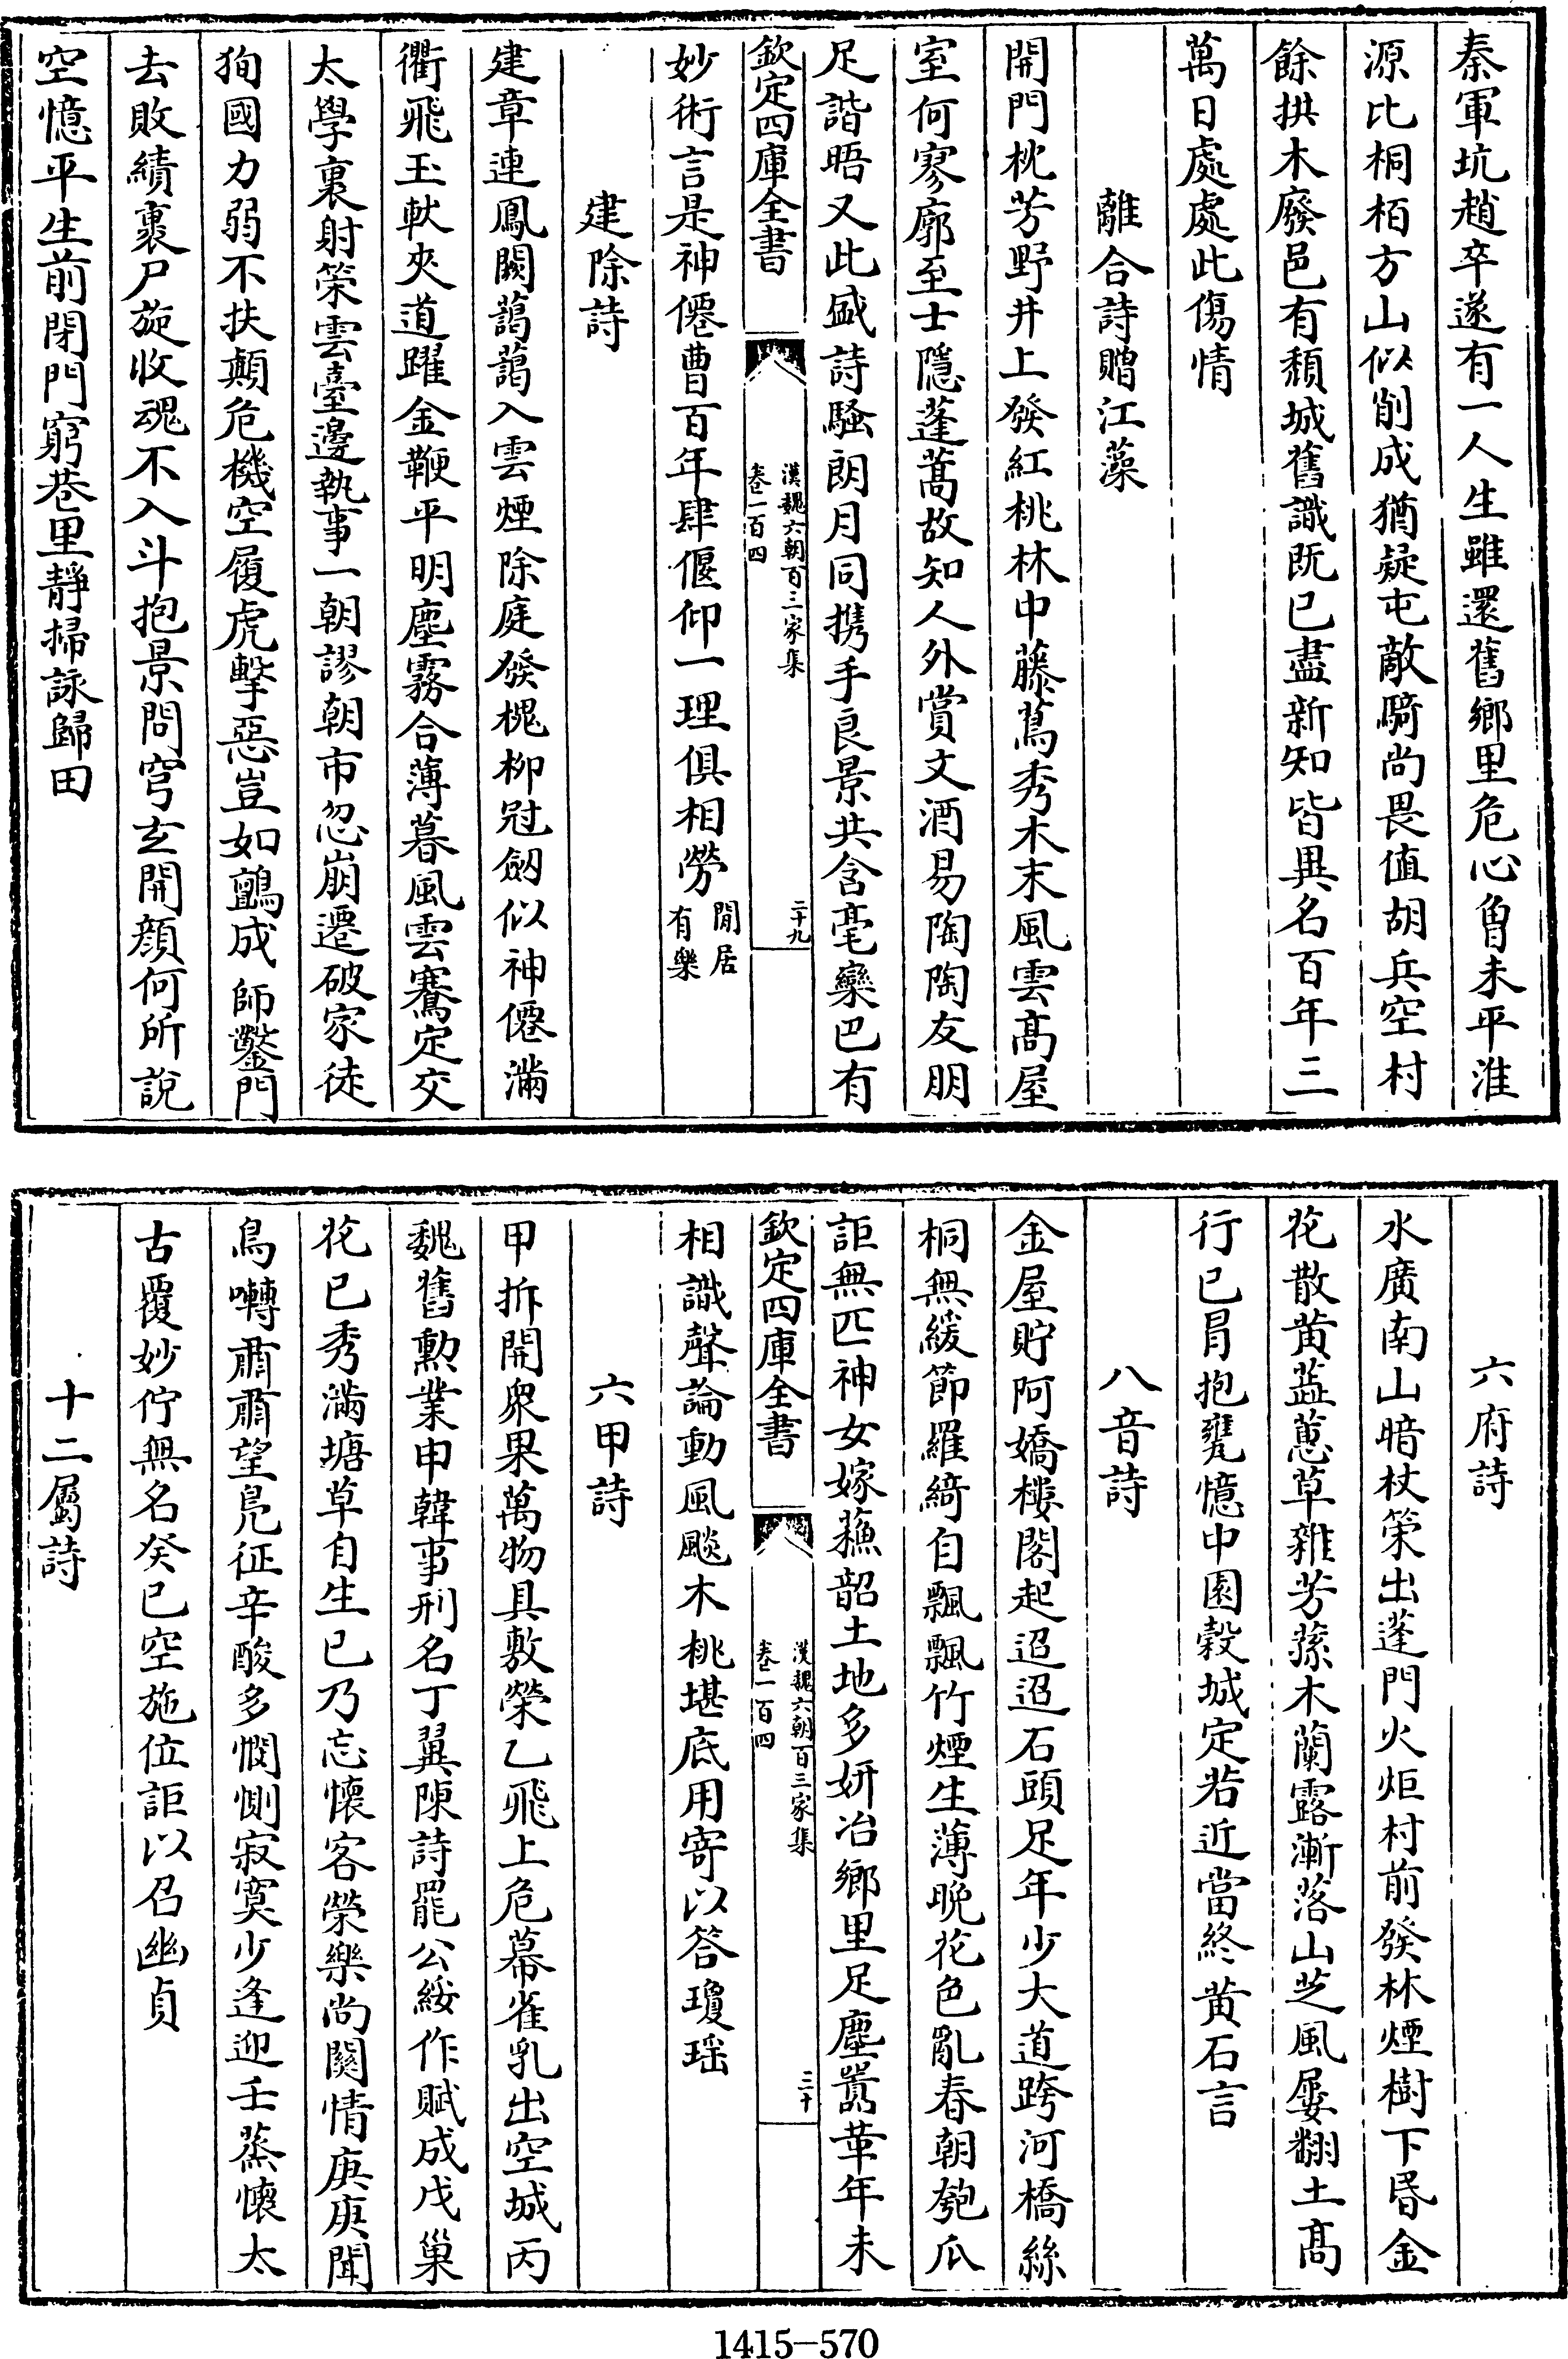 秦軍坑趙卒遂有一人生雖還舊鄉里危心曾未平淮
源比桐栢方山似削成猶疑屯敵騎尚畏值胡兵空村
餘拱木廢邑有頹城舊識既已盡新知皆異名百年三
萬日處處此傷情
離合詩贈江藻
開門枕芳野井上發紅桃林中藤蔦秀木末風雲髙屋
室何寥廓至士隱蓬蒿故知人外賞文酒易陶陶友朋
足諧晤又此盛詩騷朗月同携手良景共含毫欒巴有
欽定四庫全書
漢魏六朝百三家集
卷一百四
二十九
妙術言是神僊曹百年肆偃仰一理俱相勞閒居有樂
建除詩
建章連鳳闕藹藹入雲煙除庭發槐柳冠劒似神僊滿
衢飛玉軑夾道躍金鞭平明塵霧合薄暮風雲騫定交
太學裏射䇿雲臺邊執事一朝謬朝市忽崩遷破家徒
狥國力弱不扶顛危機空履虎擊惡豈如鸇成師鑿門
去敗績裹尸旋收魂不入斗抱景問穹玄開顔何所說
空憶平生前閉門窮巷里靜掃詠歸田
六府詩
水廣南山暗杖䇿出蓬門火炬村前發林煙樹下昏金
花散黄蘂蕙草雜芳蓀木蘭露漸落山芝風屢翻土髙
行已冒抱甕憶中園穀城定若近當終黄石言
八音詩
金屋貯阿嬌樓閣起迢迢石頭足年少大道跨河橋絲
桐無緩節羅綺自飄飄竹煙生薄晚花色亂春朝匏瓜
詎無匹神女嫁蘓韶土地多妍冶鄉里足塵囂革年未
欽定四庫全書
漢魏六朝百三家集
卷一百四
三十
相識聲論動風飈木桃堪底用寄以答瓊瑶
六甲詩
甲拆開衆果萬物具敷榮乙飛上危幕雀乳出空城丙
魏舊勲業申韓事刑名丁翼陳詩罷公綏作賦成戊巢
花已秀滿塘草自生已乃忘懷客榮樂尚關情庚庚聞
鳥囀肅肅望鳧征辛酸多憫惻寂寞少逢迎壬蒸懷太
古覆妙佇無名癸巳空施位詎以召幽貞
十二屬詩
1415-570